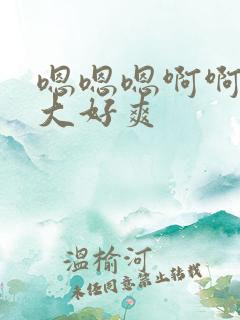 嗯嗯嗯啊啊
大好爽
温榆河
未经同意禁止转载